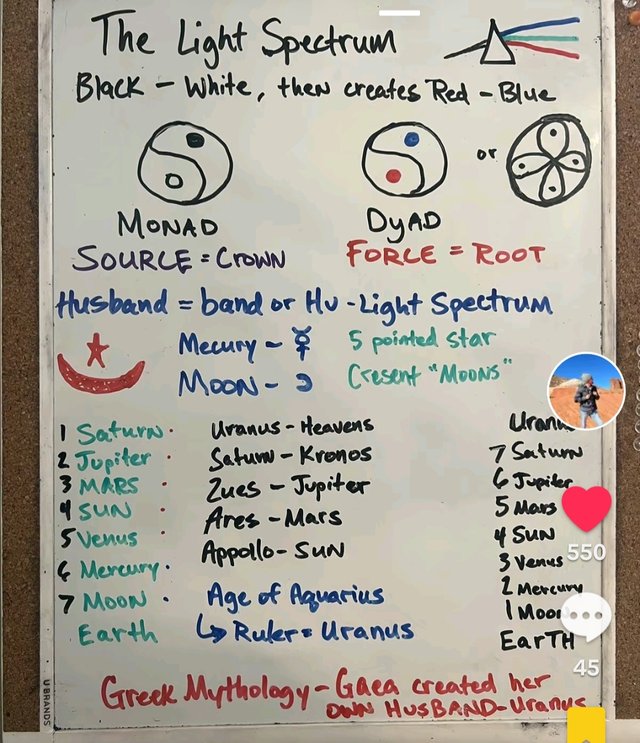 The Light Spectrum
Black - White, then creates Red - Blue
or
MONAD
DyAD
SOURCE = CROWN
FORCE = ROOT
Husband = band or Hu - Light Spectrum
Mecury - ☿ 5 pointed star
Moon - ☽ Cresent "Moons"
1 Saturn · Uranus - Heavens
2 Jupiter · Saturn - Kronos 7 Saturn
3 MARS · Zues - Jupiter 6 Jupiter
4 SUN · Ares - Mars 5 Mars
5 Venus · Appollo - SUN 4 SUN
6 Mercury · 3 Venus
7 Moon · Age of Aquarius 2 Mercury
Earth ↳ Ruler = Uranus 1 Moon
EarTH
Greek Mythology - Gaea created her
OWN HUSBAND - Uranus
550
45
UBRANDS